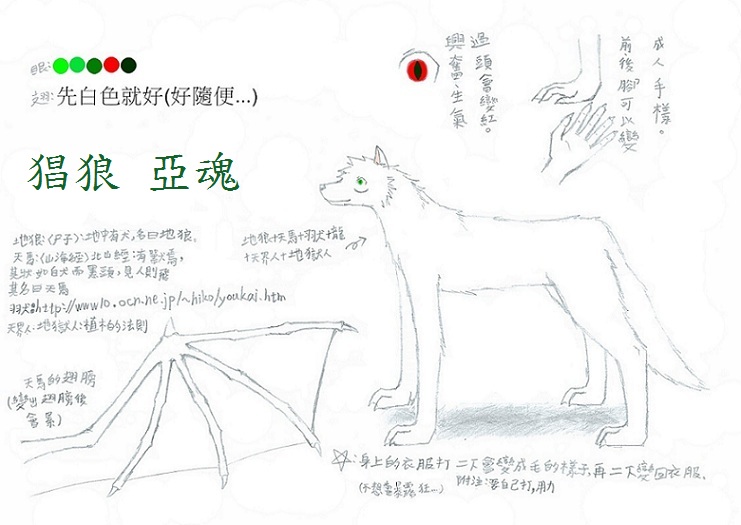 眼:
翅:先白色就好(好隨便...)
猖狼 亞魂
地狼:《尸子》:地中有犬,名曰地狼。
天馬:《山海經》北山經:有獸焉,
其狀如白犬而黑頭,見人則飛
其名曰天馬
羽犬:http://www10.ocn.ne.jp/~hiko/youkai.htm
天界人:地獄人:植木的法則
天馬的翅膀
(變出翅膀後
會累)
地狼+天馬+羽犬+龍
+天界人+地獄人
興奮、生氣
過頭會變紅。
前後腳可以變
成人手樣。
☆:身上的衣服打二下會變成毛的樣子,再二下變回衣服。
(不想當暴露狂...)
附注:要自己打,用力